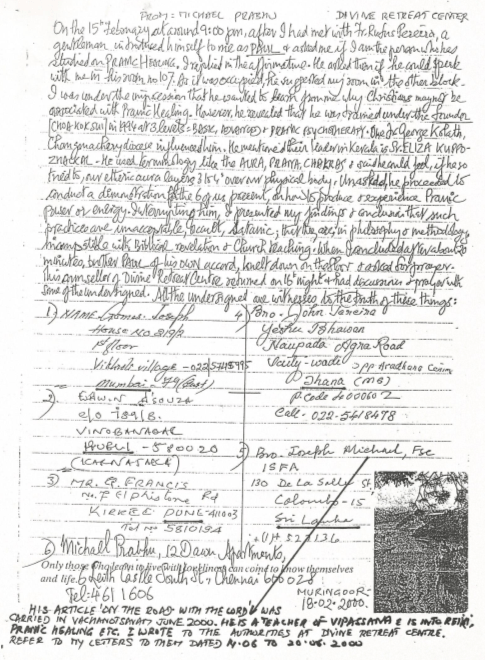 FROM: MICHAEL PRABHU DIVINE RETREAT CENTER
On the 15th February at around 9:00 pm, after I had met with Fr. Rufus Pereira, a
gentleman introduced himself to me as PAUL & asked me if I am the person who has
studied on PRANIC HEALING. I replied in the affirmative. He asked then if he could speak
with me in his room no 107. As it was occupied, he suggested my room in the other block.
I was under the impression that he wanted to learn from me why Christians may not be
associated with Pranic Healing. However, he revealed that he was trained under the founder
[CHOA KOK SUI] in 1994 at 3 levels - BASIC, ADVANCED & PRANIC PSYCHOTHERAPY. One Fr. George Kolath,
Changanachery diocese influenced him. He mentioned their leader in Kerala is Sr. ELIZA KUPPO-
ZHACKAL. He used terminology like the AURA, PRANA, CHAKRAS & said he could feel, if he so
tried to, our etheric aura layers 3 & 4" over our physical body. Unasked, he proceeded to
conduct a demonstration for the 6 of us present, on how to produce & experience Pranic
power or energy. Interrupting him, I presented my findings & conclusion that such
practices are unacceptable, occult, Satanic; that they are in philosophy & methodology
incompatible with Biblical revelation & Church teaching. When I concluded after about 10
minutes, brother PAUL of his own accord, knelt down on the floor & asked for prayer.
This counsellor of Divine Retreat Centre returned on 16th night & had discussions & prayer with
some of the undersigned. All the undersigned are witnesses to the truth of these things:
1) NAME Gomas Joseph
House No 819/2
1st floor
Vikhroli village - 022 5745995
Mumbai - 79 (East)
2) EDWIN D'SOUZA
c/o 1891B.
VINOBANAGAR
HUBLI - 580020
(KARNATAKA)
3) MR. G. FRANCIS
No. 7 Elphistone Rd
KIRKEE PUNE-411003
Tel no 5810194
4) Bro. John Taneira
Yeshu Bhawan
Naupada Agra Road
Vcity-wadi opp Aradhana Cenima
Thana (MS)
P. code 400602
Call - 022-5418478
5) Bro. Joseph Michael, Fsc
ISFA
130 De La Salle St,
Colombo-15
Sri Lanka
(1) 523136
6) Michael Prabhu, 12 Dawn Apartments,
Only those who learn to live with longings can come to know themselves
and life. 6 Leith Castle South St., Chennai 600028
Tel: 461 1606
MURINGOOR
18-02-2000.
HIS ARTICLE 'ON THE ROAD WITH THE LORD' WAS
CARRIED IN VACHANOTSAVAM JUNE 2000. HE IS A TEACHER OF VIPASSANA & IS INTO REIKI,
PRANIC HEALING ETC. I WROTE TO THE AUTHORITIES AT DIVINE RETREAT CENTRE.
REFER TO MY LETTERS TO THEM DATED 4.06 TO 20.06.2000